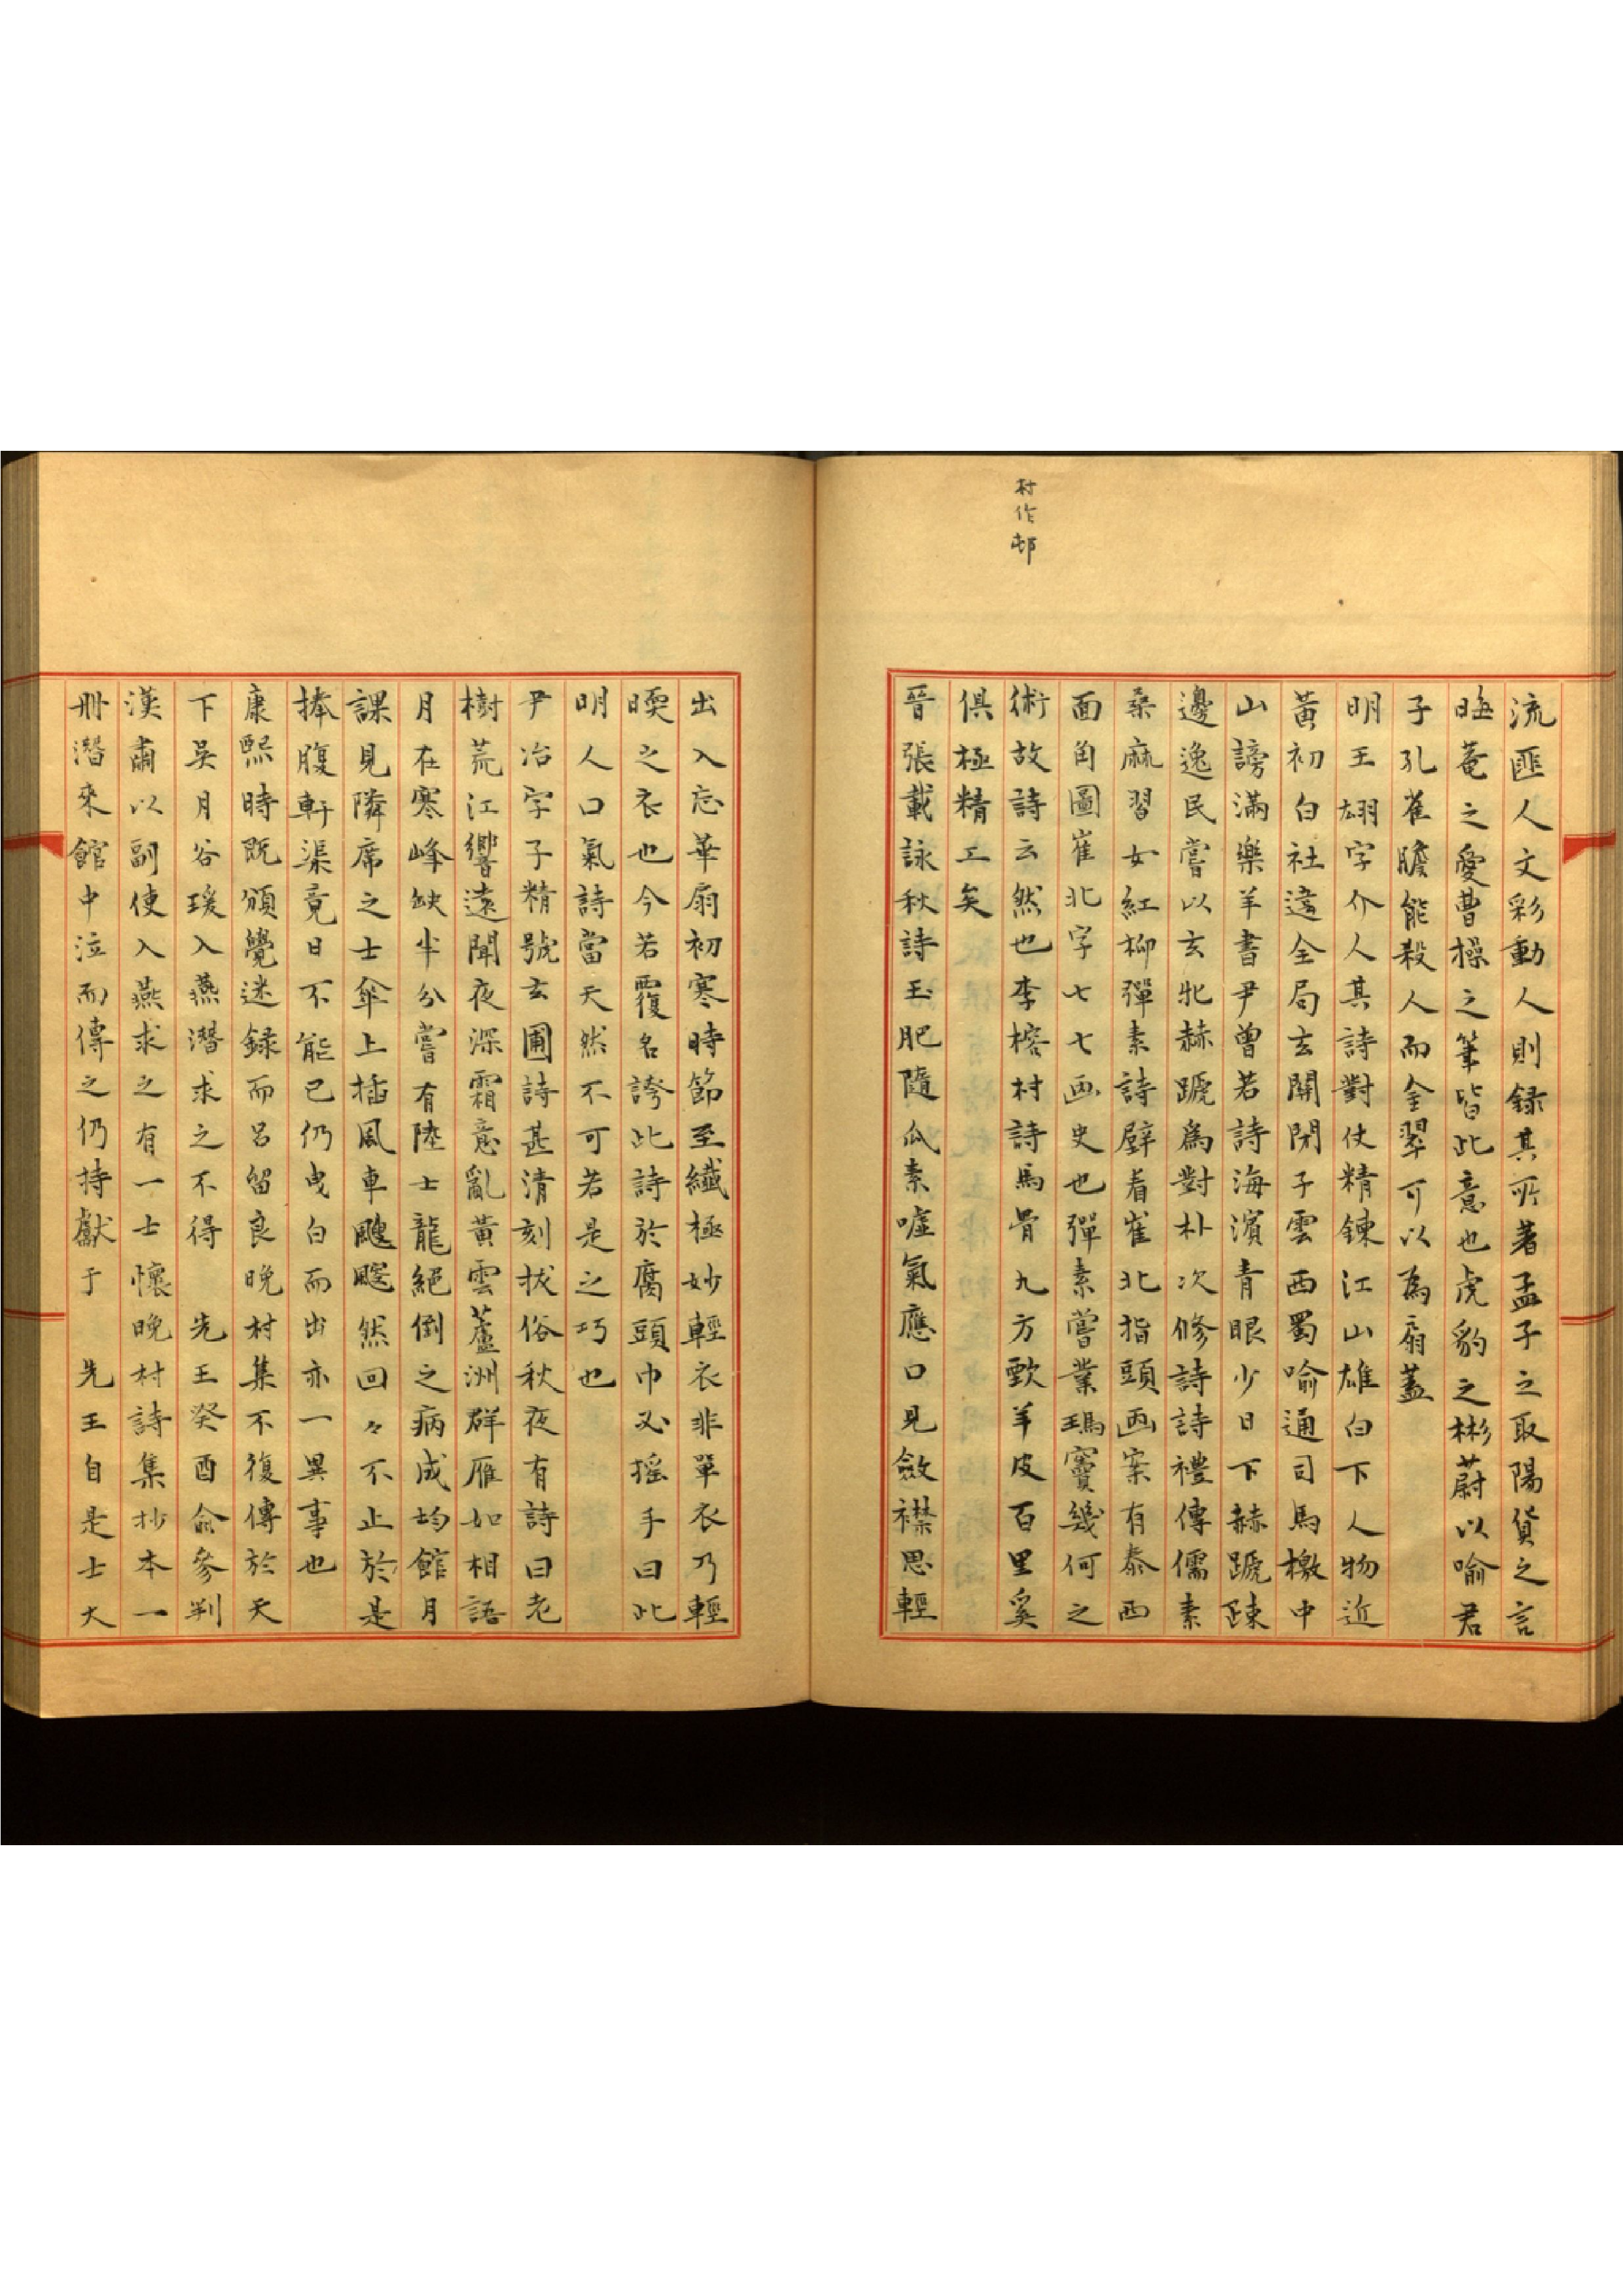 村作邨
流匪人文彩動人則録其所著孟子之取陽貨之言
晦菴之愛曹操之筆皆此意也虎豹之彬蔚以喻君
子孔雀膽能殺人而金翠可以為扇蓋
明王翃字介人其詩對仗精鍊江山雄白下人物近
黃初白社遠全局玄關閉子雲西蜀喻通司馬檄中
山謗滿樂羊書尹曽若詩海濱青眼少日下赫蹏踈
邊逸民嘗以玄牝赫蹏為對朴次修詩詩禮傳儒素
桑麻習女紅柳彈素詩壁看崔北指頭画案有泰西
面角圖崔北字七七画史也彈素嘗業瑪竇幾何之
術故詩云然也李榕村詩馬骨九方歅羊皮百里奚
俱極精工矣
晉張載詠秋詩玉肥隨瓜素噓氣應口見斂襟思輕
出入忘華扇初寒時節至纎極妙輕衣非單衣乃輕
𣊓之衣也今若覆名誇此詩於腐頭巾必摇手曰此
明人口氣詩當天然不可若是之巧也
尹冶字子精號玄圃詩甚清刻拔俗秋夜有詩曰老
樹荒江響遠聞夜深霜意亂黃雲蘆洲群雁如相語
月在寒峰缺半分嘗有陸士龍絕倒之病成均館月
課見隣席之士傘上插風車颼飀然回々不止於是
捧腹軒渠竟日不能已仍曳白而出亦一異事也
康熙時既頒覺迷録而呂留良晚村集不復傳於天
下吳月谷瑗入燕潛求之不得　先王癸酉俞參判
漢蕭以副使入燕求之有一士懷晚村詩集抄本一
冊潛來館中泣而傳之仍持獻于　先王自是士大